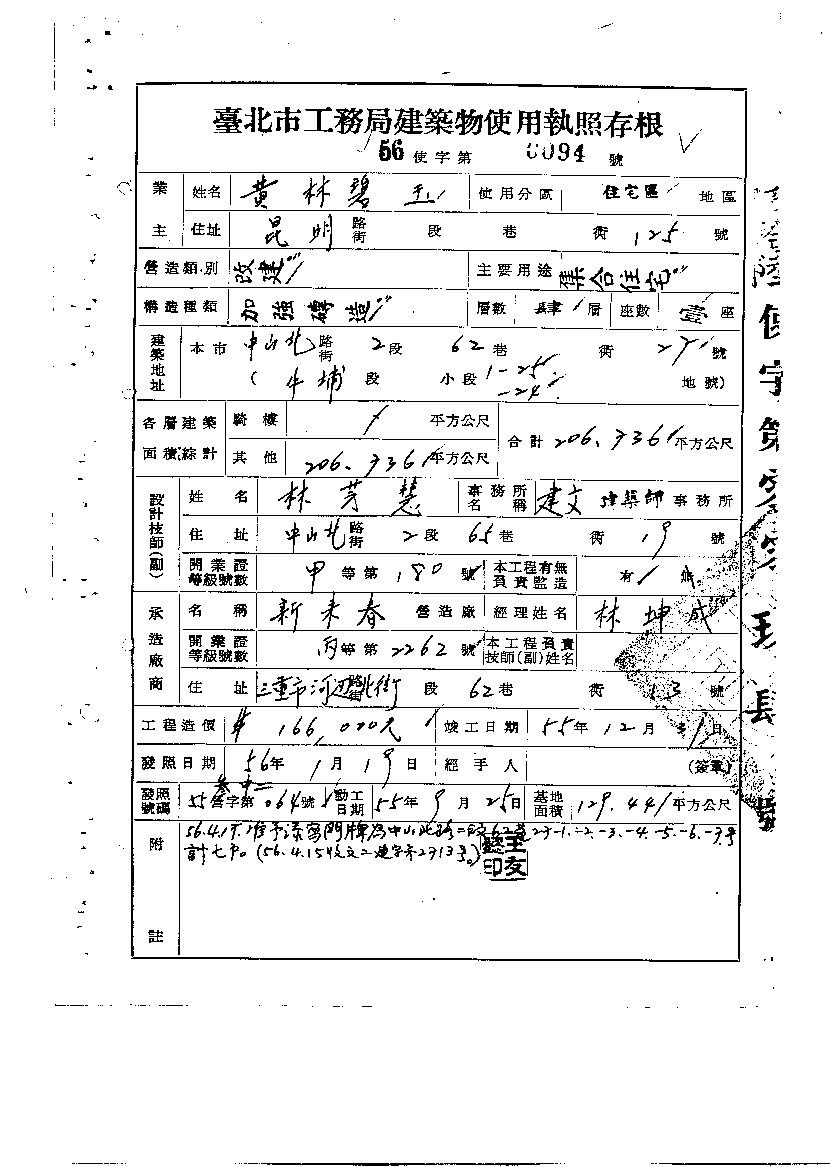 臺北市工務局建築物使用執照存根
56使字第0094號
業主 姓名 黃林碧玉 使用分區 住宅區 地區
住址 昆明路街 段 巷 衖 125號
營造類別 改建 主要用途 集合住宅
構造種類 加強磚造 層數 肆層 座數 壹座
建築地址 本市 中山北路街 2段 62巷 衖 27號
(牛埔段 小段 1-25 -24 地號)
各層建築面積綜計 騎樓 / 平方公尺 合計 206.736平方公尺
其他 206.736平方公尺
設計技師(副) 姓名 林芽慧 事務所名稱 建文建築師事務所
住址 中山北路街 2段 65巷 衖 19號
開業證等級號數 甲等第180號 本工程有無負責監造 有 無
承造廠商 名稱 新來春營造廠 經理姓名 林坤成
開業證等級號數 丙等第2262號 本工程負責技師(副)姓名
住址 三重市河邊北街 段 62巷 衖 13號
工程造價 166,000元 竣工日期 55年12月31日
發照日期 56年1月19日 經手人 (簽章)
發照號碼 55營字第064號 動工日期 55年9月25日 基地面積 129.44平方公尺
附註 56.4.15.准予添寫門牌為中山北路二段62巷27-1.-2.-3.-4.-5.-6.-7.號
計七戶。(56.4.15收文二建字第2313號。)
使字第
號